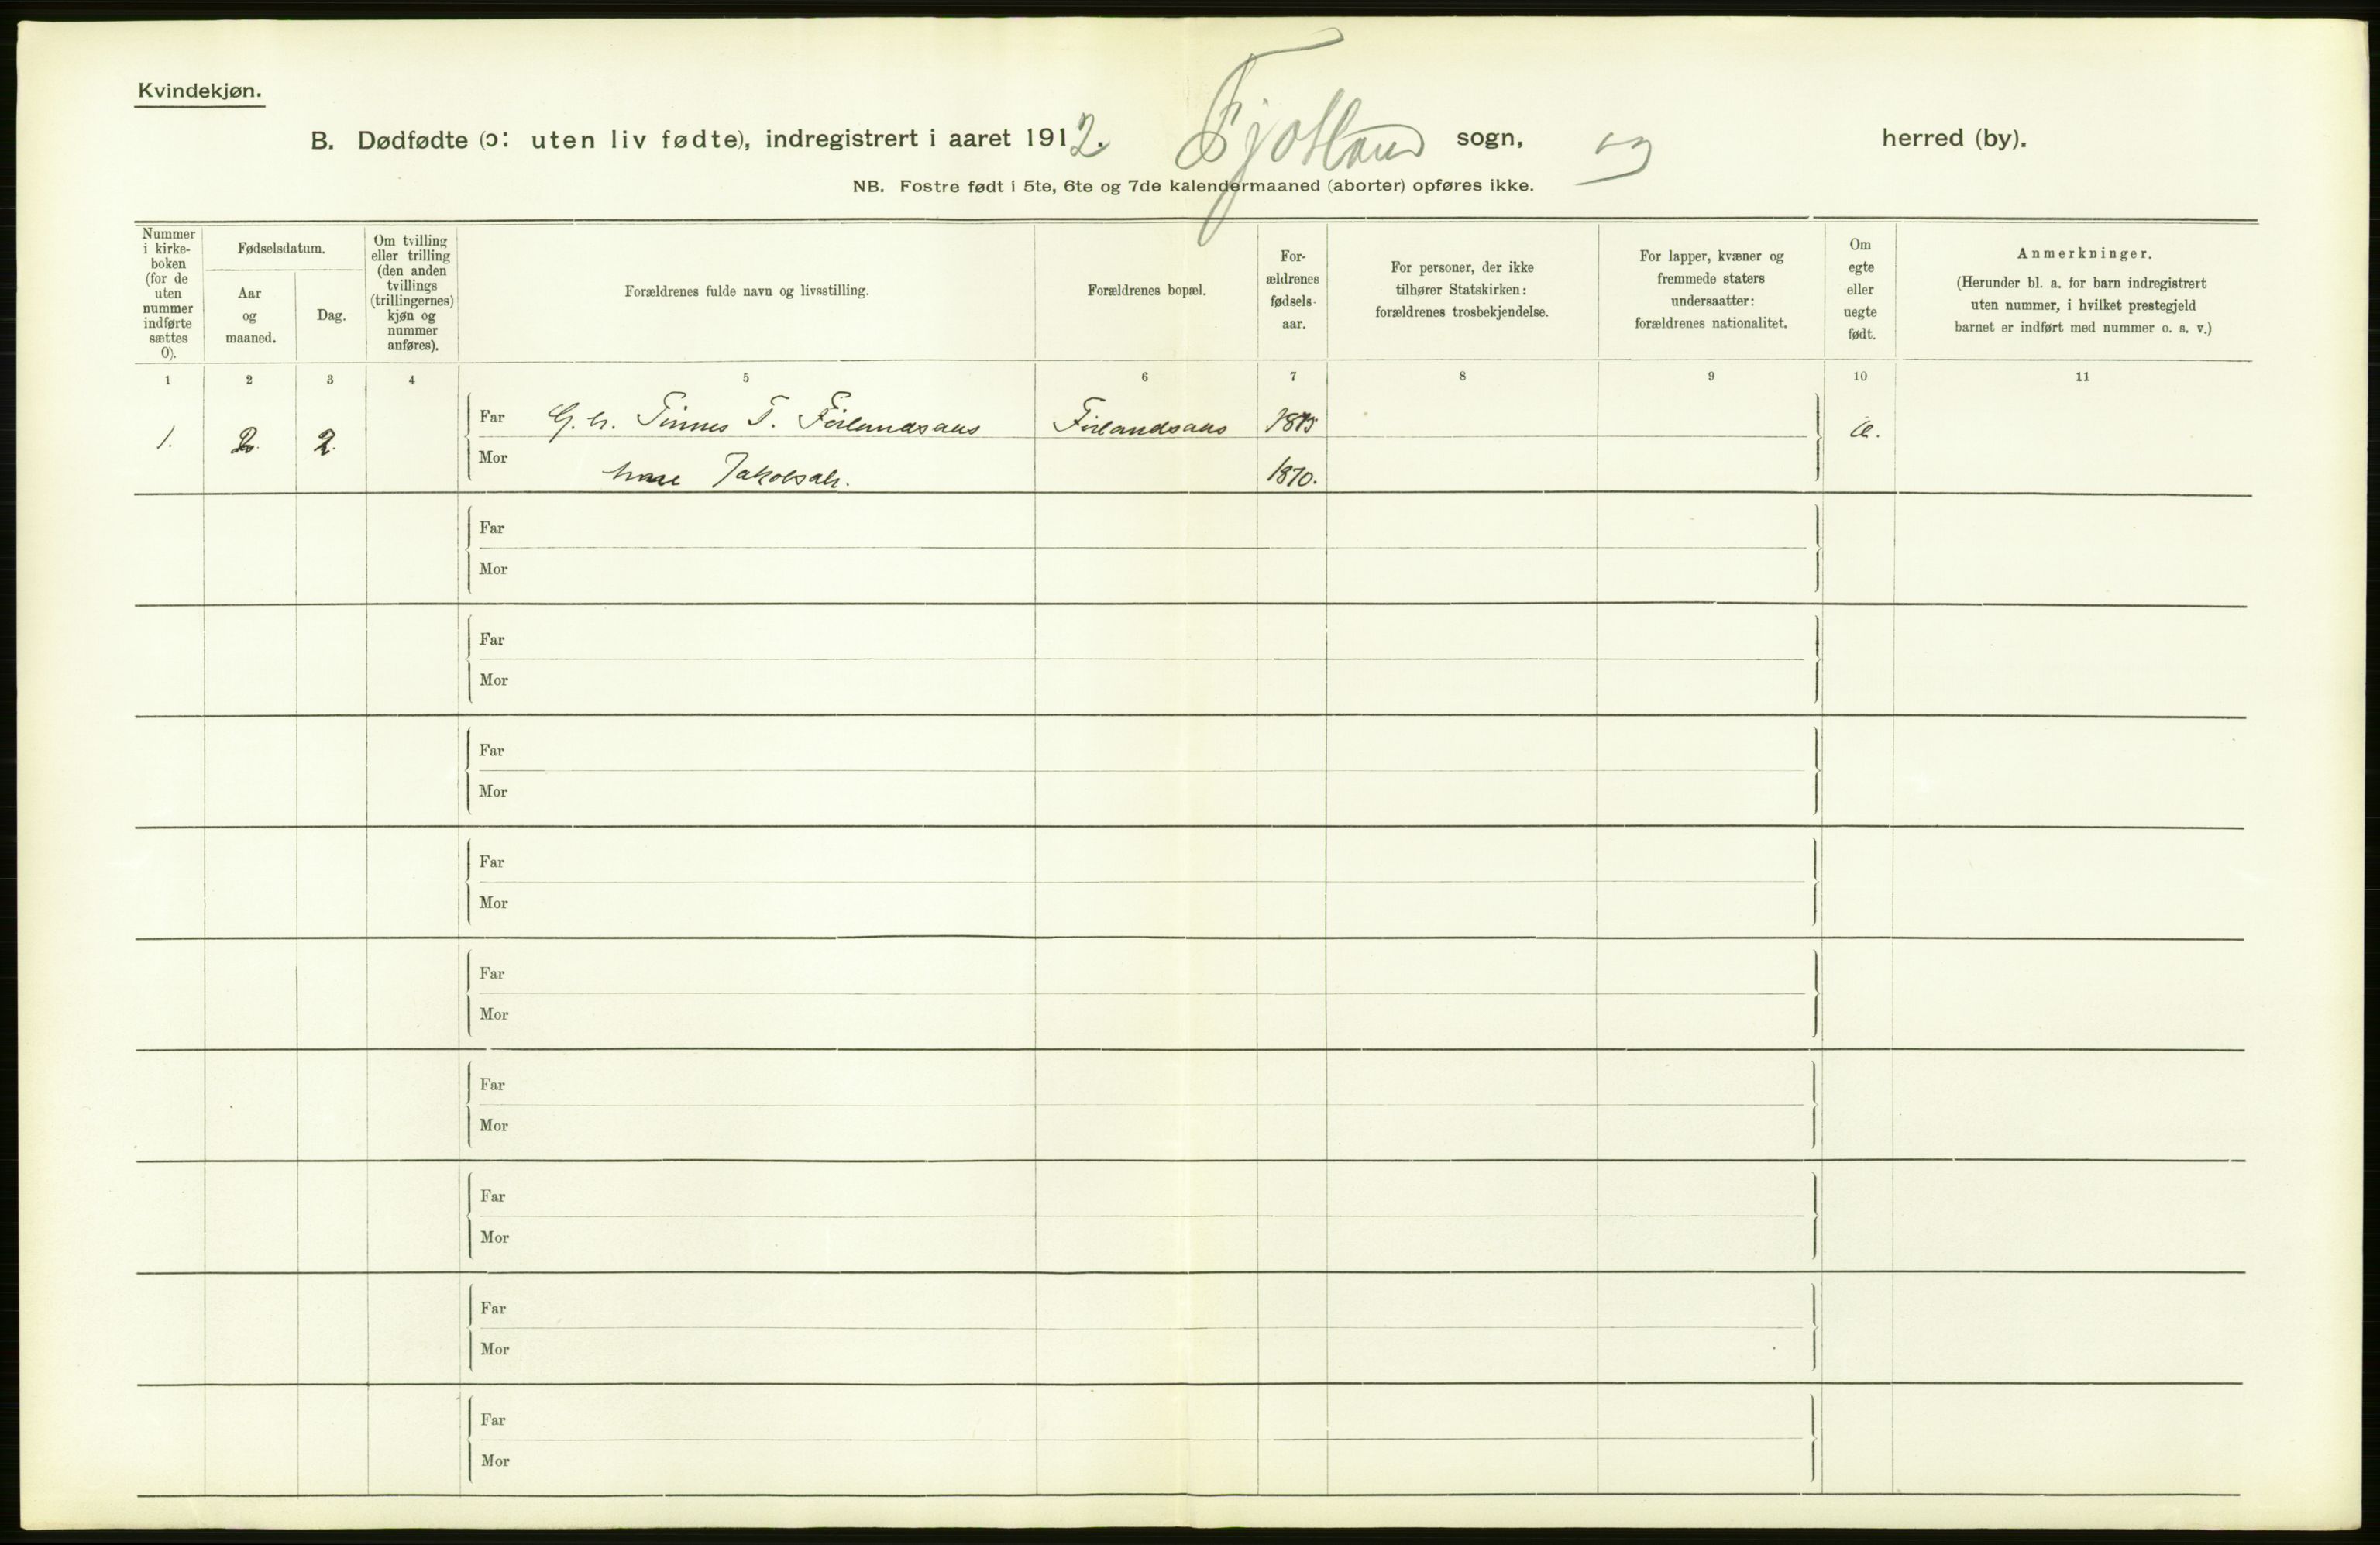 Kvindekjøn.
B. Dødfødte (ɔ: uten liv fødte), indregistrert i aaret 1912. Fjotland sogn, og herred (by).
NB. Fostre født i 5te, 6te og 7de kalendermaaned (aborter) opføres ikke.
Nummer
i kirke-
boken
(for de
uten
nummer
indførte
sættes
0).
Fødselsdatum.
Aar
og
maaned.
Dag.
Om tvilling
eller trilling
(den anden
tvillings
(trillingernes)
kjøn og
nummer
anføres).
Forældrenes fulde navn og livsstilling.
Forældrenes bopæl.
For-
ældrenes
fødsels-
aar.
For personer, der ikke
tilhører Statskirken:
forældrenes trosbekjendelse.
For lapper, kvæner og
fremmede staters
undersaatter:
forældrenes nationalitet.
Om
egte
eller
uegte
født.
Anmerkninger.
(Herunder bl. a. for barn indregistrert
uten nummer, i hvilket prestegjeld
barnet er indført med nummer o. s. v.)
1 2 3 4 5 6 7 8 9 10 11
1. 2. 2.
Far G. br. Tønnes T. 1875
Mor Jakobsdtr. 1870.
Far
Mor
Far
Mor
Far
Mor
Far
Mor
Far
Mor
Far
Mor
Far
Mor
Far
Mor
Far
Mor